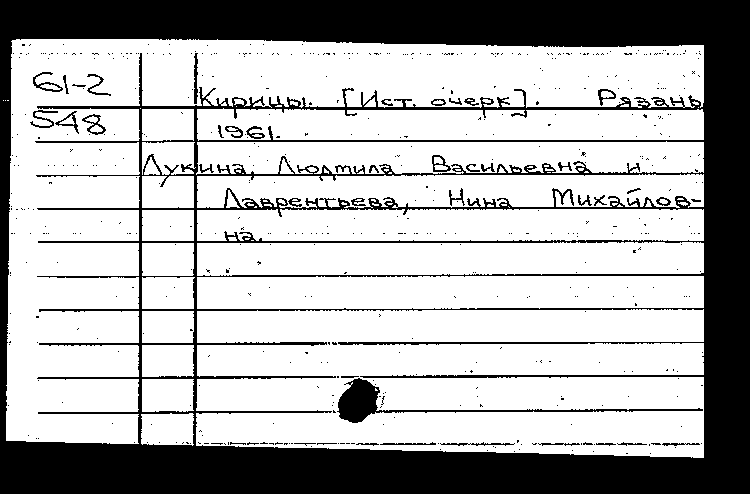 61-2
Кирицы. [Ист. очерк]. Рязань
548
1961.
Лукина, Людмила Васильевна и
Лаврентьева, Нина Михайлов-
на.